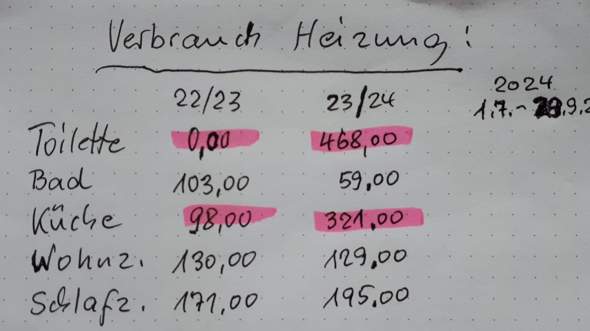 Verbrauch Heizung:
22/23 23/24 2024
1.7.-
Toilette 0,00 468,00
Bad 103,00 59,00
Küche 98,00 321,00
Wohnz. 130,00 129,00
Schlafz. 171,00 195,00